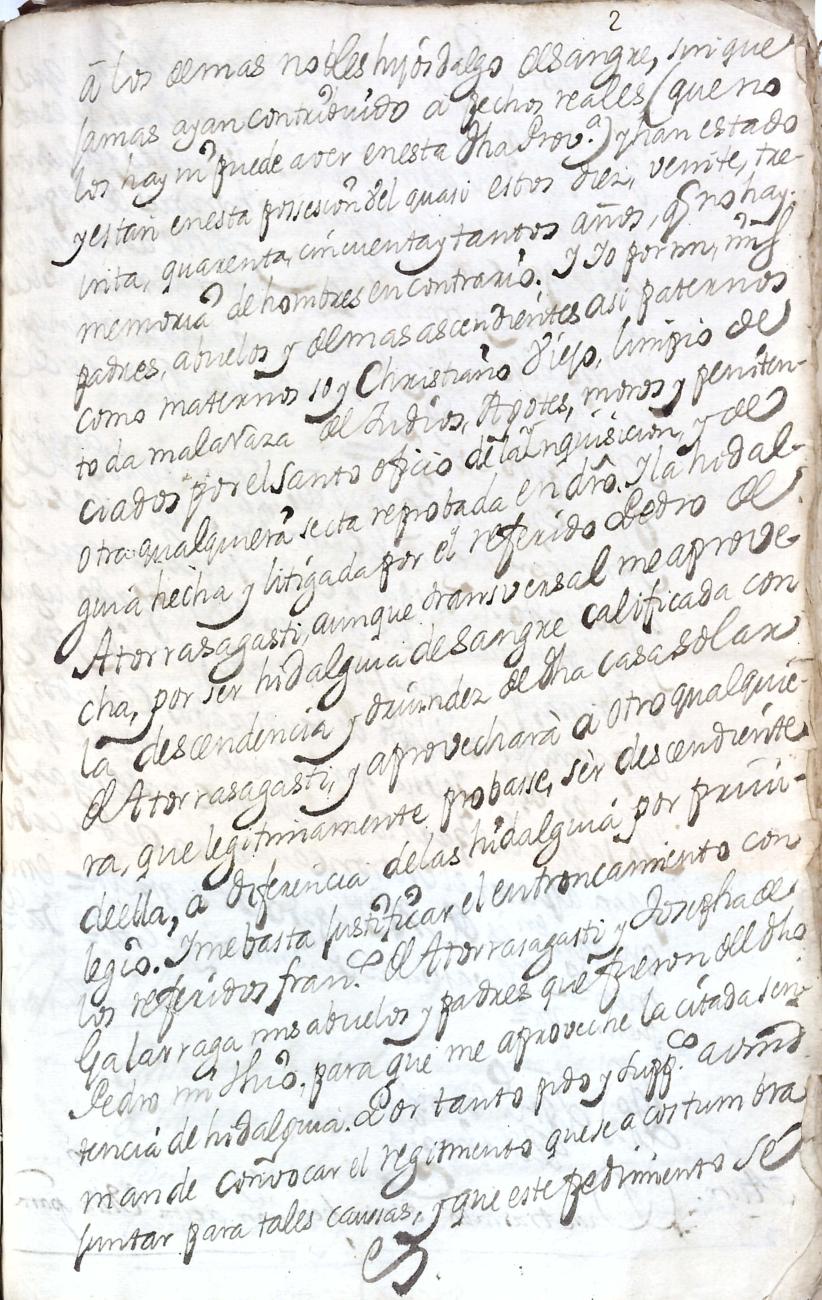 2
â los demas nobles hijosdalgo de sangre, sin que
jamas ayan contribuido a pechos reales (que no
los hay ni puede aver en esta dha Prov.ª) y han estado
y estan en esta possesion del quasi estos diez, veinte, tre-
inta, quarenta, cincuenta y tantos años, q no hay
memoria de hombres en contrario. Y Yo por mi, mis
padres, abuelos y demas ascendientes asi paternos
como maternos soy Christiano Viejo, limpio de
toda mala raza de Judios, Agotes, moros y peniten-
ciados por el Santo oficio de la Inquisicion, y de
otra qualquiera secta reprobada en dro. Y la hidal-
guia hecha y litigada por el referido Pedro de
Atorrasagasti, aunque transversal me aprove
cha, por ser hidalguia de sangre calificada con
la descendencia y dependez de dha casa solar
de Atorrasagasti, y aprovecharà a otro qualquie-
ra, que legitimamente probasse, sèr descendiente
de ella, a diferencia de las hidalguia por privi-
legio. Y me basta justificar el entroncamiento con
los referidos fran.co de Atorrasagasti y Josepha de
Galarraga mis abuelos y padres que fueron del dho
Pedro mi thio, para que me aproveche la citada sen-
tencia de hidalguia. Por tanto pido y supp.co a vmd
mande convocar el regimento que se acostumbra
juntar para tales causas, y que este pedimiento se